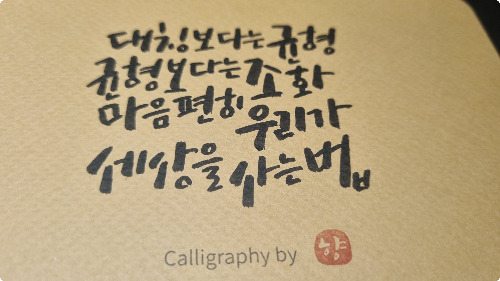 대칭보다는 균형
균형보다는 조화
마음 편히 우리가
세상을 사는 법
Calligraphy by 냥